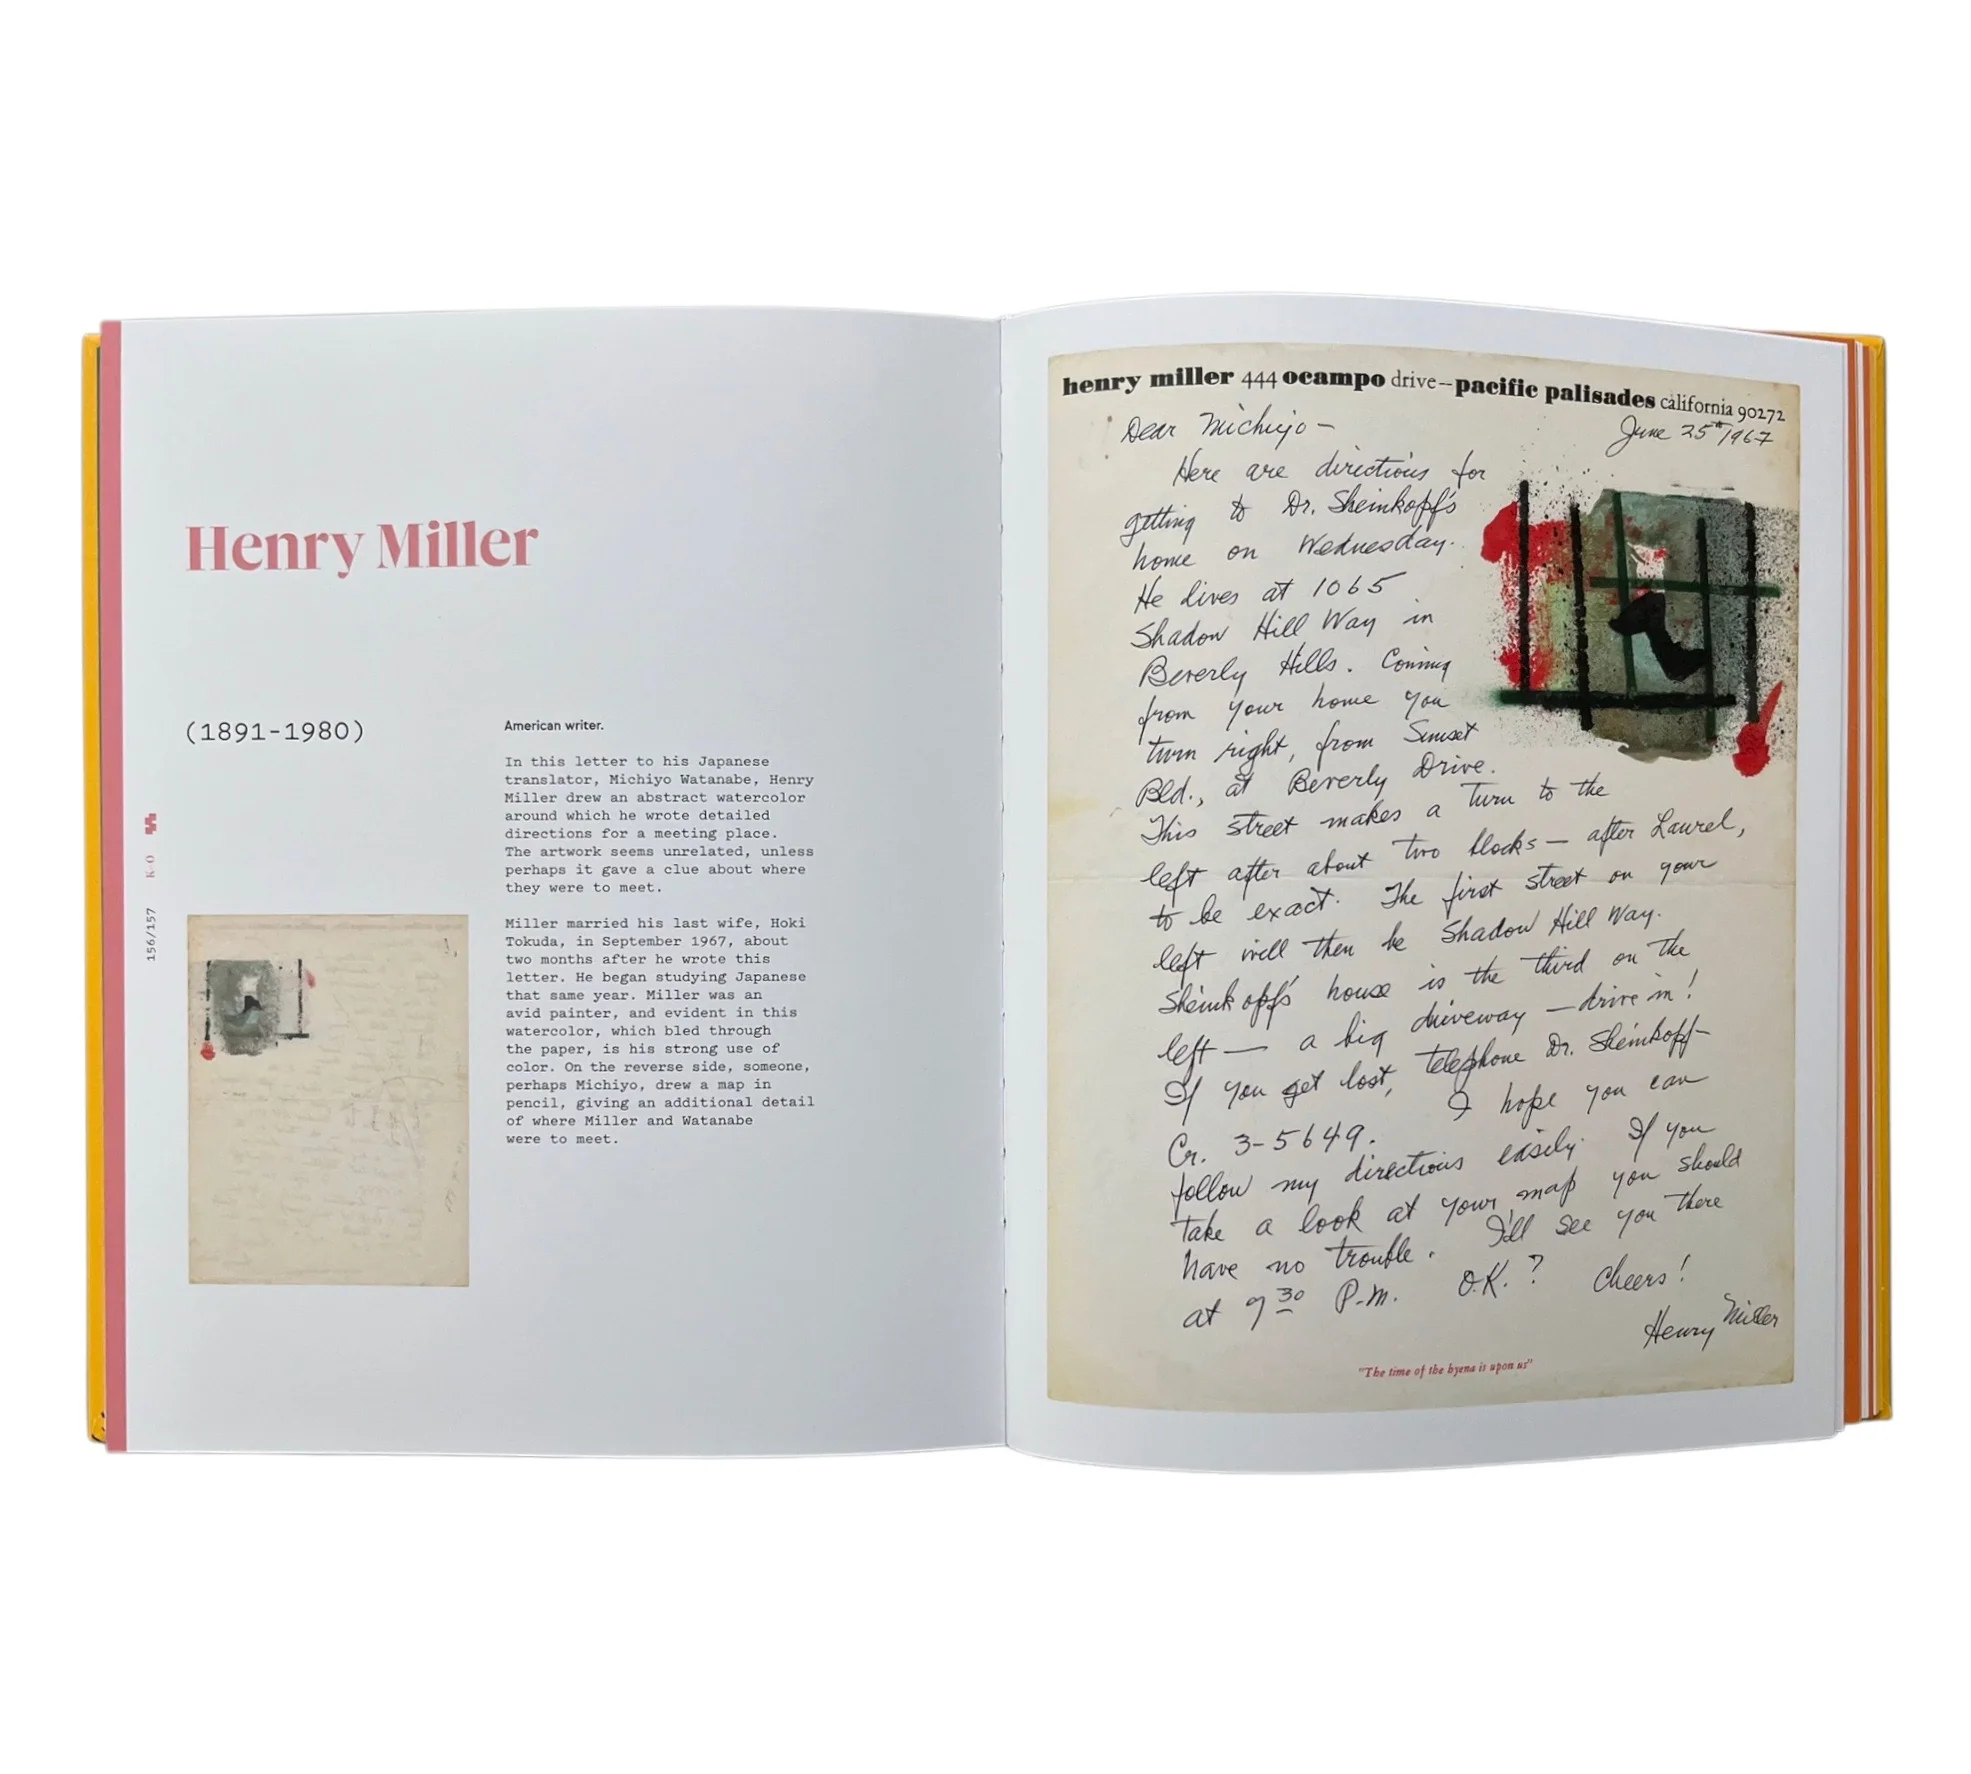 Henry Miller
(1891-1980)
American writer.
In this letter to his Japanese
translator, Michiyo Watanabe, Henry
Miller drew an abstract watercolor
around which he wrote detailed
directions for a meeting place.
The artwork seems unrelated, unless
perhaps it gave a clue about where
they were to meet.
Miller married his last wife, Hoki
Tokuda, in September 1967, about
two months after he wrote this
letter. He began studying Japanese
that same year. Miller was an
avid painter, and evident in this
watercolor, which bled through
the paper, is his strong use of
color. On the reverse side, someone,
perhaps Michiyo, drew a map in
pencil, giving an additional detail
of where Miller and Watanabe
were to meet.
156/157 K-O
henry miller 444 ocampo drive—pacific palisades california 90272
June 25th 1967
Dear Michiyo —
Here are directions for
getting to Dr. Sheinkopf's
home on Wednesday.
He lives at 1065
Shadow Hill Way in
Beverly Hills. Coming
from your home you
turn right, from Sunset
Bld., at Beverly Drive.
This street makes a turn to the
left after about two blocks — after Laurel,
to be exact. The first street on your
left will then be Shadow Hill Way.
Sheinkopf's house is the third on the
left — a big driveway — drive in!
If you get lost, telephone Dr. Sheinkopf—
Cr. 3-5649. I hope you can
follow my directions easily. If you
take a look at your map you should
have no trouble. I'll see you there
at 7 30 P.M. O.K.? Cheers!
Henry Miller
"The time of the hyena is upon us"